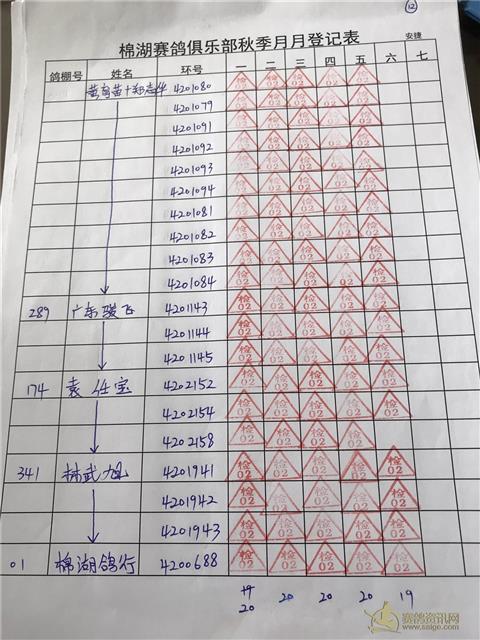 ⑫
棉湖赛鸽俱乐部秋季月月登记表 安捷
鸽棚号 姓名 环号 一 二 三 四 五 六 七
4201080 检02 检02 检02 检02 检02
4201079 检02 检02 检02 检02 检02
4201091 检02 检02 检02 检02 检02
4201092 检02 检02 检02 检02 检02
4201093 检02 检02 检02 检02 检02
4201094 检02 检02 检02 检02 检02
4201081 检02 检02 检02 检02 检02
4201082 检02 检02 检02 检02 检02
4201083 检02 检02 检02 检02 检02
4201084 检02 检02 检02 检02 检02
289 广东骏飞 4201143 检02 检02 检02 检02 检02
4201144 检02 检02 检02 检02 检02
4201145 检02 检02 检02 检02 检02
174 袁任宝 4202152 检02 检02 检02 检02 检02
4202154 检02 检02 检02 检02 检02
4202158 检02 检02 检02 检02
341 林武旭 4201941 检02 检02 检02 检02 检02
4201942 检02 检02 检02 检02 检02
4201943 检02 检02 检02 检02 检02
01 棉湖鸽行 4200688 检02 检02 检02 检02 检02
20 20 20 20 19
赛鸽资讯网
www.saige.com